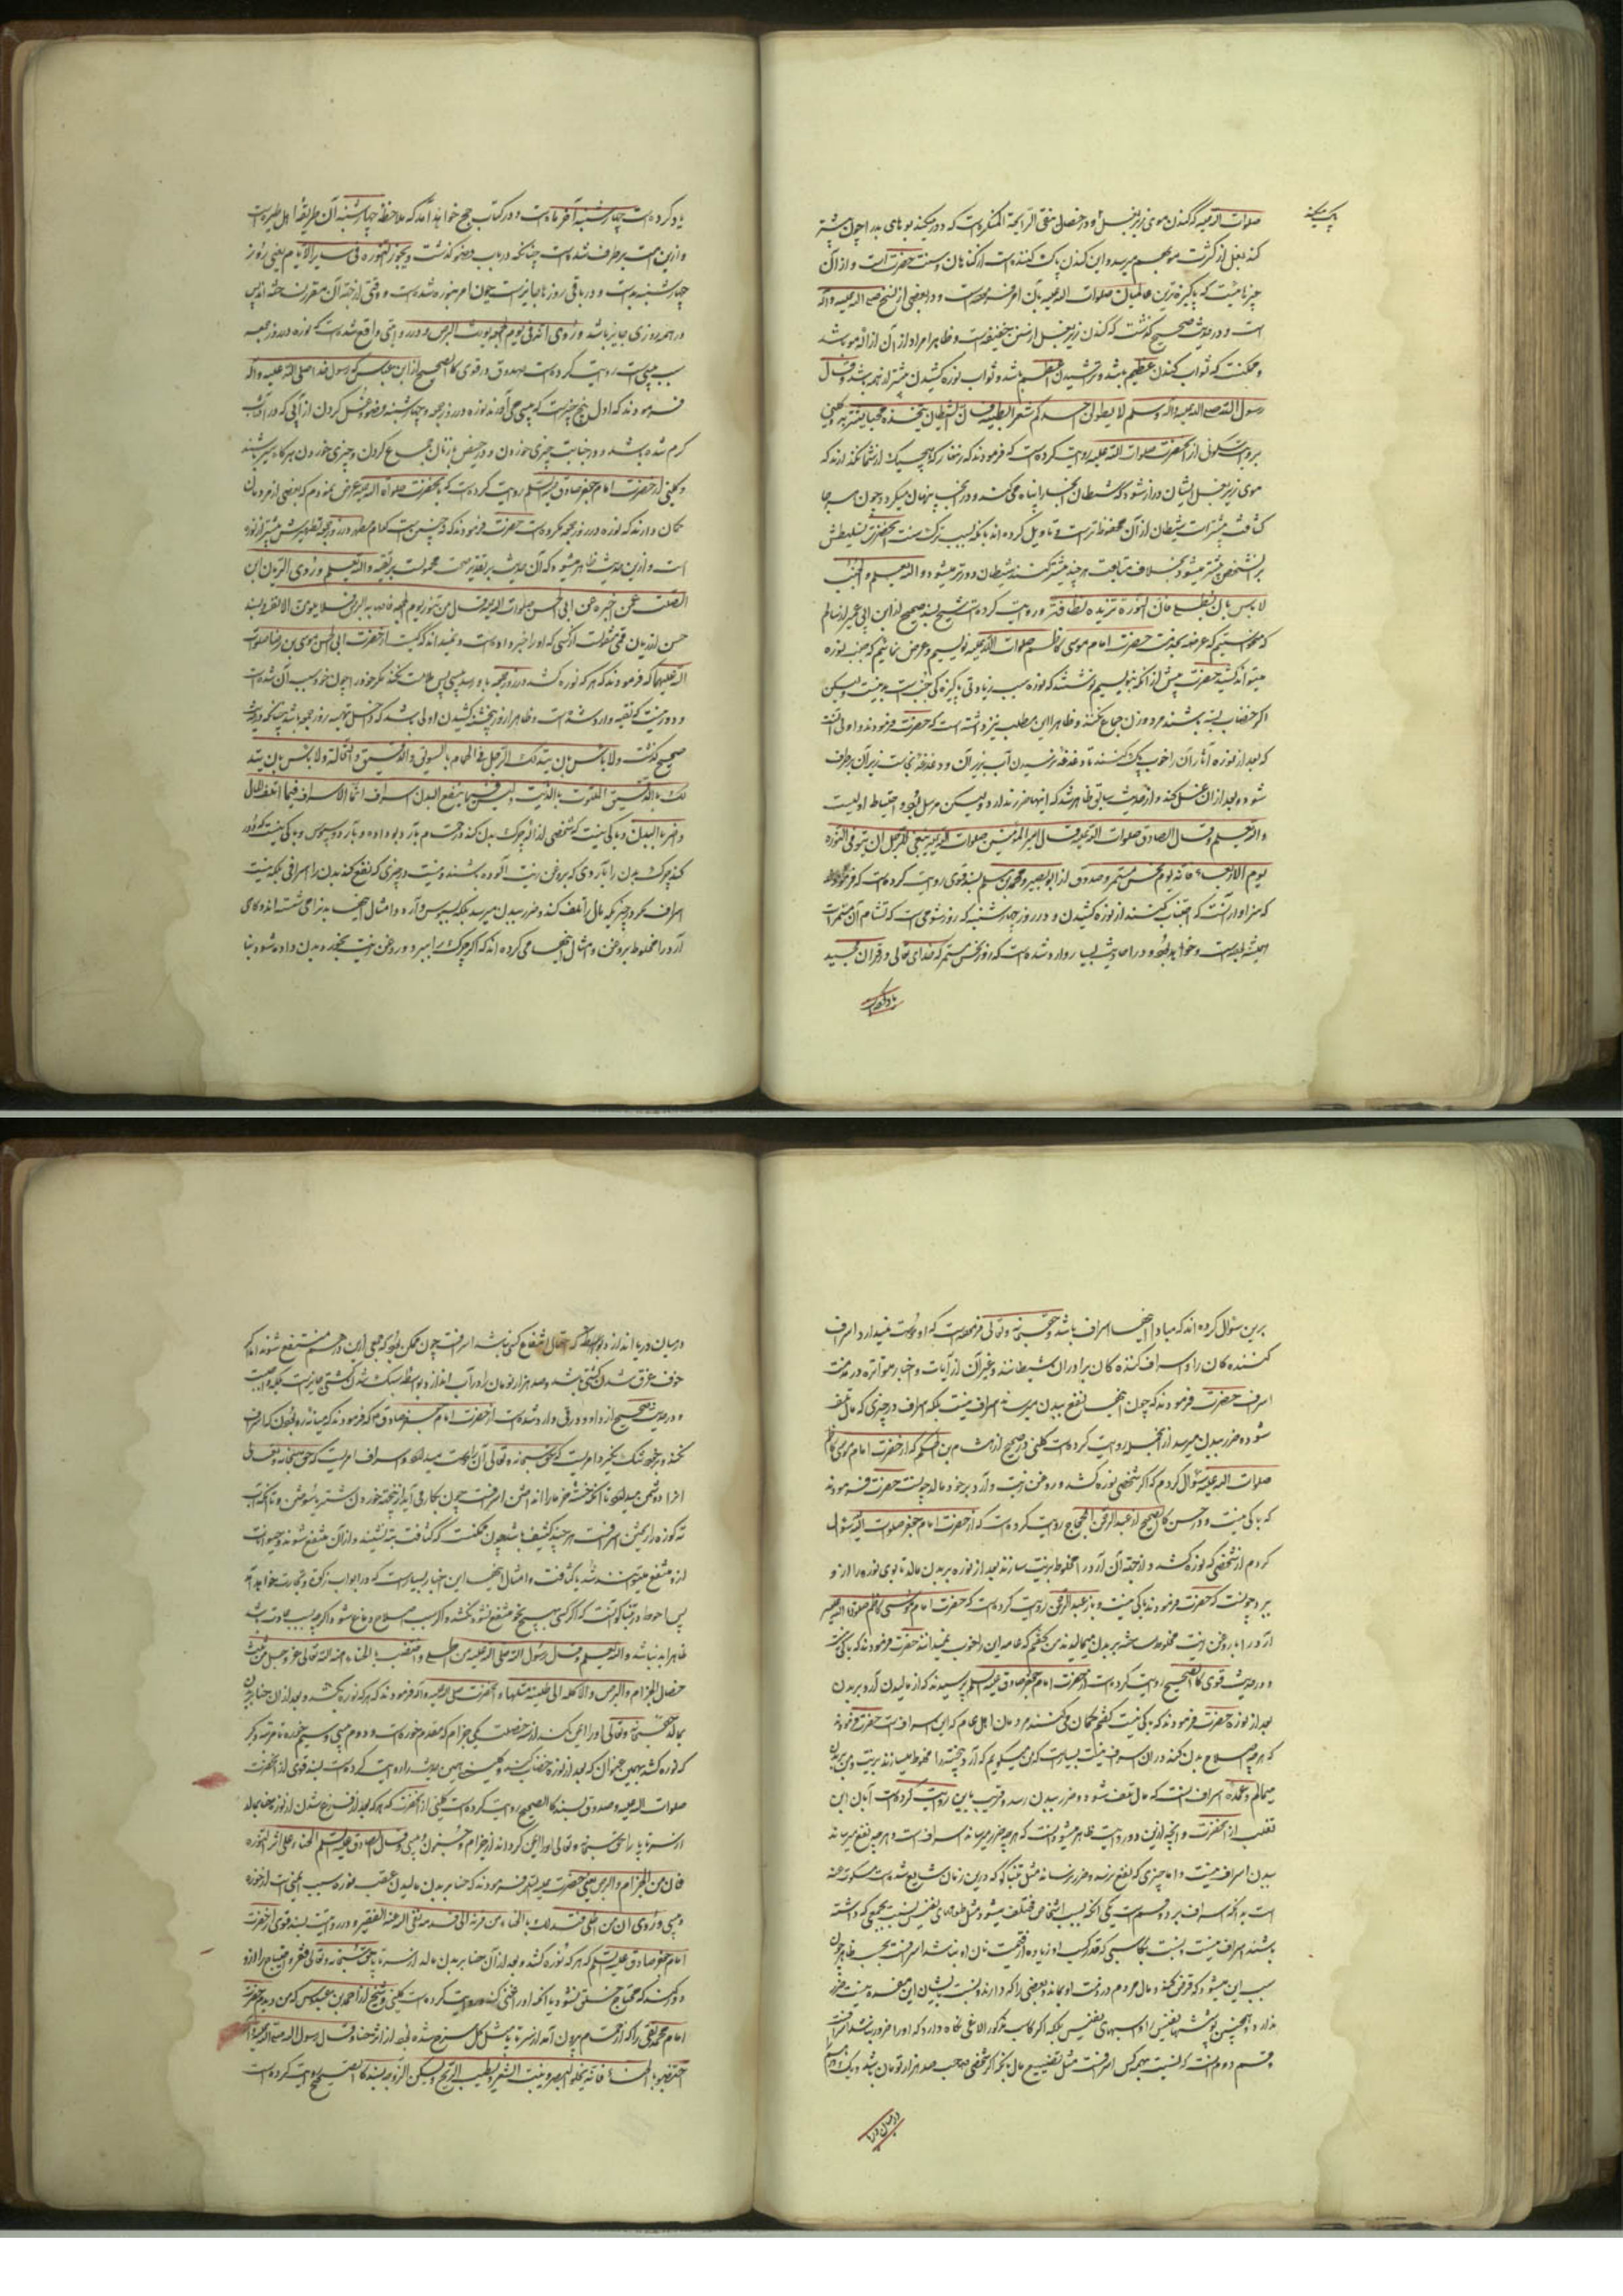 صلوات الله عليه که کندن موی زیر بغل و در خصل منفی الرایحة المنکره است که دور میکند بوهای بد را چون بیشتر
پاک میکند
کند بغل از کثرت مو بهم میرسد و این کندن پاک کننده است از کناهان و سنت حضرت است و از آن
چیزهاست که پاکیزه ترین عالمیان صلوات الله علیه بآن امر فرموده است و در بعضی از نسخ صلی الله علیه و آله
است و در حدیث صحیح گذشت که کندن زیر بغل از سنن حنیفیه است و ظاهرا مراد از آن ازاله مو باشد
و ممکنست که ثواب کندن عظیم باشد و تراشیدن اعظم باشد و ثواب نوره کشیدن بیشتر از همه باشد و قال
رسول الله صلی الله علیه و آله وسلم لا یطولن احدکم شعر ابطیه فان الشیطان یتخذه مخبأ یستتر به و کلینی
بروایت سکونی از آنحضرت صلوات الله علیه روایت کرده است که فرمودند که زنهار که هیچیک از شما نگذارند که
موی زیر بغل ایشان دراز شود که شیطان آنجا را پناه می کند و در آنجا پنهان میکردد چون هر جا
کثافت بیشتر است شیطان از آن محفوظ تر است و تاویل کرده اند بانکه بسبب ترک سنت آنحضرت تسلطش
بر آن شخص بیشتر میشود بخلاف متابعت هر چند بیشتر کنند شیطان دورتر میشود و الله یعلم و الجنب
لا باس بان یطلی فان النورة تزیده نظافة و روایت کرده است شیخ بسند صحیح از ابن ابی عمیر از سالم
که میخواستیم که عریضه بخدمت حضرت امام موسی کاظم صلوات الله علیه نویسیم و عرض نمائیم که جنب نوره
میتواند کشید حضرت پیش از آنکه بنویسیم نوشتند که نوره سبب زیادتی پاکیزه کی جنب است و لیکن
اکر خضاب بسته باشند مرد و زن جماع نکنند و ظاهرا این مطلب نیز داشته است که حضرت فرمودند و اولی آنست
که بعد از نوره آثار آن را خوب پاک کنند تا دغدغه نرسیدن آب بزیر آن و دغدغه نجاست زیر آن برطرف
شود و بعد از آن غسل کند و از حدیث سابق ظاهر شد که اینها ضرر ندارد و لیکن مرسل بود و احتیاط اولیست
و الله یعلم و قال الصادق صلوات الله علیه قال امیر المؤمنین صلوات الله علیه ینبغی للرجل ان یتوقی النورة
یوم الاربعاء فانه یوم نحس مستمر و صدوق از ابو بصیر و محمد بن مسلم بسند قوی روایت کرده است که فرمودند
که سزاوار آنست که اجتناب کنند از نوره کشیدن در روز چهارشنبه که روز شومی است که شئامت آن مستمر است
همیشه بوده است و خواهد بود و در احادیث بسیار وارد شده است که روز نحس مستمر که خدای تعالی در قرآن مجید
یاد کرده است
یاد کرده است چهارشنبه آخر ماه است و در کتاب حج خواهد آمد که ملاحظه چهارشنبه آن طریقه اهل طیره است
و ازین امت برطرف شده است چنانکه در باب وضو گذشت و یجوز النورة فی سایر الایام یعنی روز
چهارشنبه بد است و در باقی روزها جایز است چون امر بنوره شده است و وقتی از جهة آن مقرر نساخته اند پس
در همه روزی جایز باشد و روی انه فی یوم الجمعة یورث البرص و در روایتی واقع شده است که نوره در روز جمعه
سبب پیسی است روایت کرده است صدوق در قوی کالصحیح از ابن عباس که رسول خدا صلی الله علیه و آله
فرمودند که اول پنج چیز است که پیسی می آورند نوره در روز جمعه و چهارشنبه و وضو و غسل کردن از آبی که در آفتاب
کرم شده باشد و در جنابت چیزی خوردن و در حیض با زنان جماع کردن و چیزی خوردن هر گاه سیر باشند
و کلینی از حضرت امام جعفر صادق علیه السلم روایت کرده است که بآنحضرت صلوات الله علیه عرض نمودم که بعضی از مردمان
کمان دارند که نوره در روز جمعه مکروه است حضرت فرمودند که نه چنین است کدام مطهر در روز جمعه تطهیرش بیشتر از نوره
است و ازین حدیث ظاهر میشود که آن حدیث بر تقدیر صحت محمولست بر تقیه و الله یعلم و روی الریان بن
الصلت عمن اخبره عن ابی الحسن صلوات الله علیه قال من تنور یوم الجمعة فاصابه البرص فلا یلومن الا نفسه و بسند
حسن از ریان قمی منقولست از کسی که او را خبر داده است و نمیداند که کیست از حضرت ابی الحسن موسی بن رضا صلوات
الله علیهما که فرمودند که هر که نوره کشد در روز جمعه باو رسد پیسی پس ملامت نکند مکر خود را چون خود سبب آن شده است
و دور نیست که تقیه وارد شده است و ظاهرا روز پنجشنبه کشیدن اولی باشد که داخل تهیه روز جمعه باشد چنانکه در حدیث
صحیح گذشت و لا باس بان یتدلک الرجل فی الحمام بالسویق و الدقیق و النخالة و لا باس بان یتد
لک بالدقیق الملتوت بالزیت و لیس فیما ینفع البدن اسراف انما الاسراف فیما اتلف المال
و اضر بالبدن و باکی نیست که شخصی از اله چرک بدن کند در حمام بآرد بو داده و بآرد و سبوس و باکی نیست که دور
کند چرک بدن را بآردی که بروغن زیت آلوده باشند و نیست در چیزی که نفع کند بدن را اسرافی بلکه نیست
اسراف مکر در چیزیکه مال را تلف کند و ضرر ببدن میرسد بلکه بسبوس و آرد و امثال اینها بدن را می شسته اند و کاهی
آرد را مخلوط بروغن و امثال اینها می کرده اند که اگر چرک را ببرد و روغن زیت بخورد بدن داده شود بنا
برین سؤال کرده اند که مبادا اینها اسراف باشد و حق سبحانه و تعالی فرموده است که او دوست نمیدارد اسراف
کننده کان را و اسراف کننده کان برادران شیطانند و غیر آن از آیات و اخبار متواتره در مذمت
اسراف حضرت فرمودند که چون اینها نفع ببدن میرساند اسراف نیست بلکه اسراف در چیزی که مال تلف
شود و ضرر ببدن میرسد از آنجمله روایت کرده است کلینی در صحیح از هشام بن الحکم که از حضرت امام موسی کاظم
صلوات الله علیه سؤال کردم که اکر شخصی نوره کشد و روغن زیت و آرد بر خود مالد چونست حضرت فرمودند
که باکی نیست و در حسن کالصحیح از عبد الرحمن الحجاج روایت کرده است که از حضرت امام جعفر صلوات الله سؤال
کردم از شخصی که نوره کشد و از جهة آن آرد را مخلوط بزیت سازند بعد از نوره بر بدن مالد تا بوی نوره را از و
ببرد چونست که حضرت فرمودند باکی نیست و باز عبد الرحمن روایت کرده است که حضرت امام موسی کاظم صلوات الله علیه
آرد را با روغن زیت مخلوط ساخته بر بدن میمالیدند من گفتم که عامه این را خوب نمیدانند حضرت فرمودند که باکی نیست
و در حدیث قوی کالصحیح روایت کرده است از حضرت امام جعفر صادق علیه السلم پرسیدند که از مالیدن آرد بر بدن
بعد از نوره حضرت فرمودند که باکی نیست گفتم کمان می کنند مردمان اهل عام که این اسراف است حضرت فرمودند
که هر چه اصلاح بدن کند در آن اسراف نیست بسیار است که من میکویم که آرد پخته را مخلوط میسازند بزیت و من بر بدن
میمالم و عمده اسراف آنست که مال تلف شود و ضرر ببدن رسد و قریب باین روایت کرده است ابان ابن
تغلب از آنحضرت و آنچه ازین دو روایت ظاهر میشود آنست که هر چه ضرر میرساند اسراف است و هر چه نفع میرساند
ببدن اسراف نیست و اما چیزی که نفع نرسد و ضرر نرساند مثل تنباکو که درین زمان شایع شده است مسکوت عنه
است بدانکه اسراف بر دو قسم است یکی آنکه بسبب اشخاص مختلف میشود مثل طعامهای نفیس نسبت بجمعی که داشته
باشند اسراف نیست و نسبت بکاسبی که قدر کسب او زیاده از قیمت نان او نباشد اسرافست بحسب ظاهر چون
سبب این میشود که قرض کند و مال مردم در ذمت او بماند و بعضی را که دارند و نسبت بایشان این مفسده نیست ضرر
ندارد و همچنین پوششهای نفیس و اسبهای نفیس بلکه اکر کاسب مذکور الاغی نگاه دارد که او را ضرور نباشد اسرافست
و قسم دوم آنست که نسبت بهمه کس اسرافست مثل تضییع مال بلکه اگر شخصی صاحب صد هزار تومان باشد و یک درهم را
در میان دریا
در میان دریا اندازد بواسطه آنکه احتمال انتفاع کسی نباشد اسرافست چون ممکن بود که جمعی ازین درهم منتفع شوند اما اکر
خوف غرق شدن کشتی باشد و صد هزار تومان را در آب اندازد بواسطه سبک شدن کشتی جایز است بلکه واجبست
و در حدیث صحیح از داود رقی وارد شده است از حضرت امام جعفر صادق ع که فرمودند که میانه روی بدون که اسراف
نکند و بر خود تنک نکیرد امریست که حق سبحانه و تعالی آن را دوست میدارد و اسراف امریست که حق سبحانه و تعالی
آنرا دشمن میدارد تا آنکه خسته خرما را انداختن اسرافست چون بکار می آید از پخته خوردن شتر یا سوختن و تا آنکه آب
ته کوزه را ریختن اسرافست هر چند کثیف باشد چون ممکنست که کثافت ته نشیند و از آن منتفع شوند و حیوانات
از و منتفع میتوانند شد با کثافت و امثال اینها این اخبار بسیار است که در ابواب زکوة و تجارت خواهد آمد
پس احوط در تنباکو آنست که اکر کسی بهیچ نحو منتفع نشود نکشد و اکر سبب اصلاح دماغ شود اکر چه بسبب عادت باشد
ظاهرا بد نباشد و الله یعلم و قال رسول الله صلی الله علیه من اطلی و اختضب بالحناء آمنه الله تعالی عز و جل من ثلث
خصال الجذام و البرص و الاکلة الی طلیة مثلها و آنحضرت صلی الله علیه و آله فرمودند که هر که نوره بکشد و بعد از آن حنا بر بدن
بمالد حق سبحانه و تعالی او را ایمن کند از سه خصلت یکی جذام که مقدم خوره است و دوم پیسی و سیم خوره تا مرتبه دیکر
که نوره کشد بهمین عنوان که بعد از نوره خضاب کند و کلینی همین حدیث را روایت کرده است بسند قوی از آنحضرت
صلوات الله علیه و صدوق بسند کالصحیح روایت کرده است کلینی از آنحضرت که هر که بعد از فارغ شدن از نوره حنا بمالد
از سر تا پا حق سبحانه و تعالی او را ایمن کرداند از جذام و جنون و پیسی و قال الصادق علیه السلم الحناء علی اثر النورة
امان من الجذام و البرص یعنی حضرت علیه السلم فرمودند که حنا بر بدن مالیدن عقب نوره سبب ایمنی است از خوره
و پیسی و روی ان من اطلی فتدلک بالحناء من قرنه الی قدمه نفی الله عنه الفقر و در روایت بسند قوی از حضرت
امام جعفر صادق علیه السلم که هر که نوره کشد و بعد از آن حنا بر بدن مالد از سر تا پا حق سبحانه و تعالی فقر و احتیاج را از و
دور کند که محتاج خلق نشود یا آنکه او را غنی کند و روایت کرده است کلینی و شیخ از احمد بن عبدوس که من دیدم حضرت
امام محمد تقی را که از حمام بیرون آمد از سر تا پا مثل کل سرخ شده بود از اثر حنا و قال رسول الله صلی الله علیه و آله
اختضبوا بالحناء فانه یجلو البصر و ینبت الشعر و یطیب الریح و یسکن الزوجة بسند کالصحیح روایت کرده است